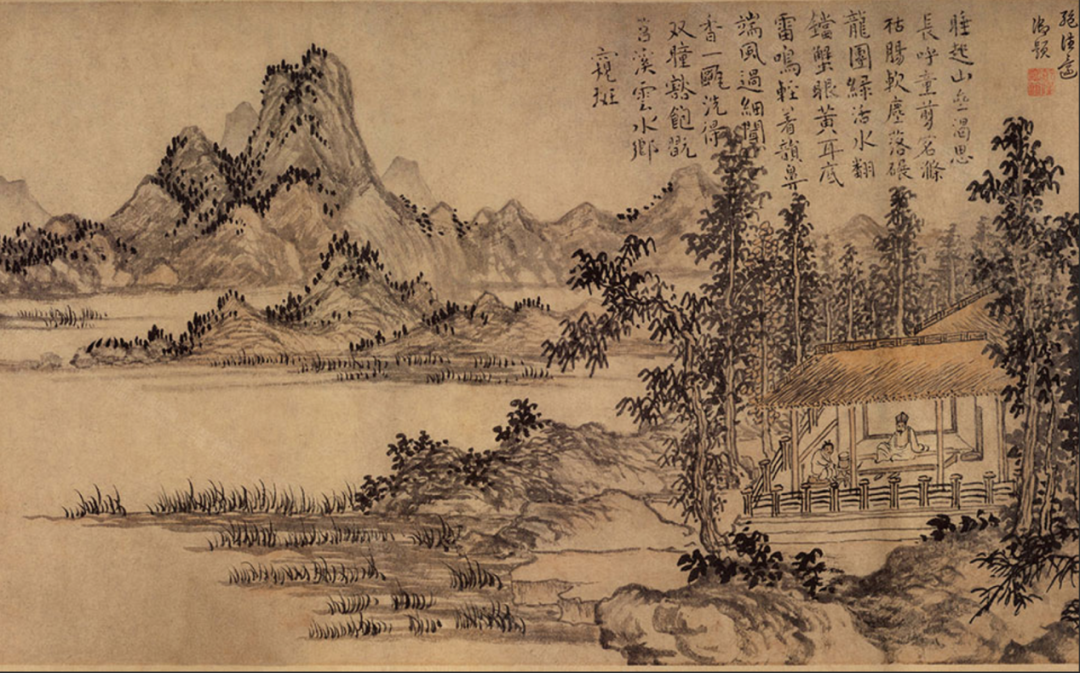 御題
睡起山齋渴思
長呼童剪茗滌
枯腸軟塵落碾
龍團緑活水翻
鐺蟹眼黃耳底
雷鳴輕着韻鼻
端風過細聞
香一甌洗得
双瞳豁飽翫
苕溪雲水鄉
窺斑